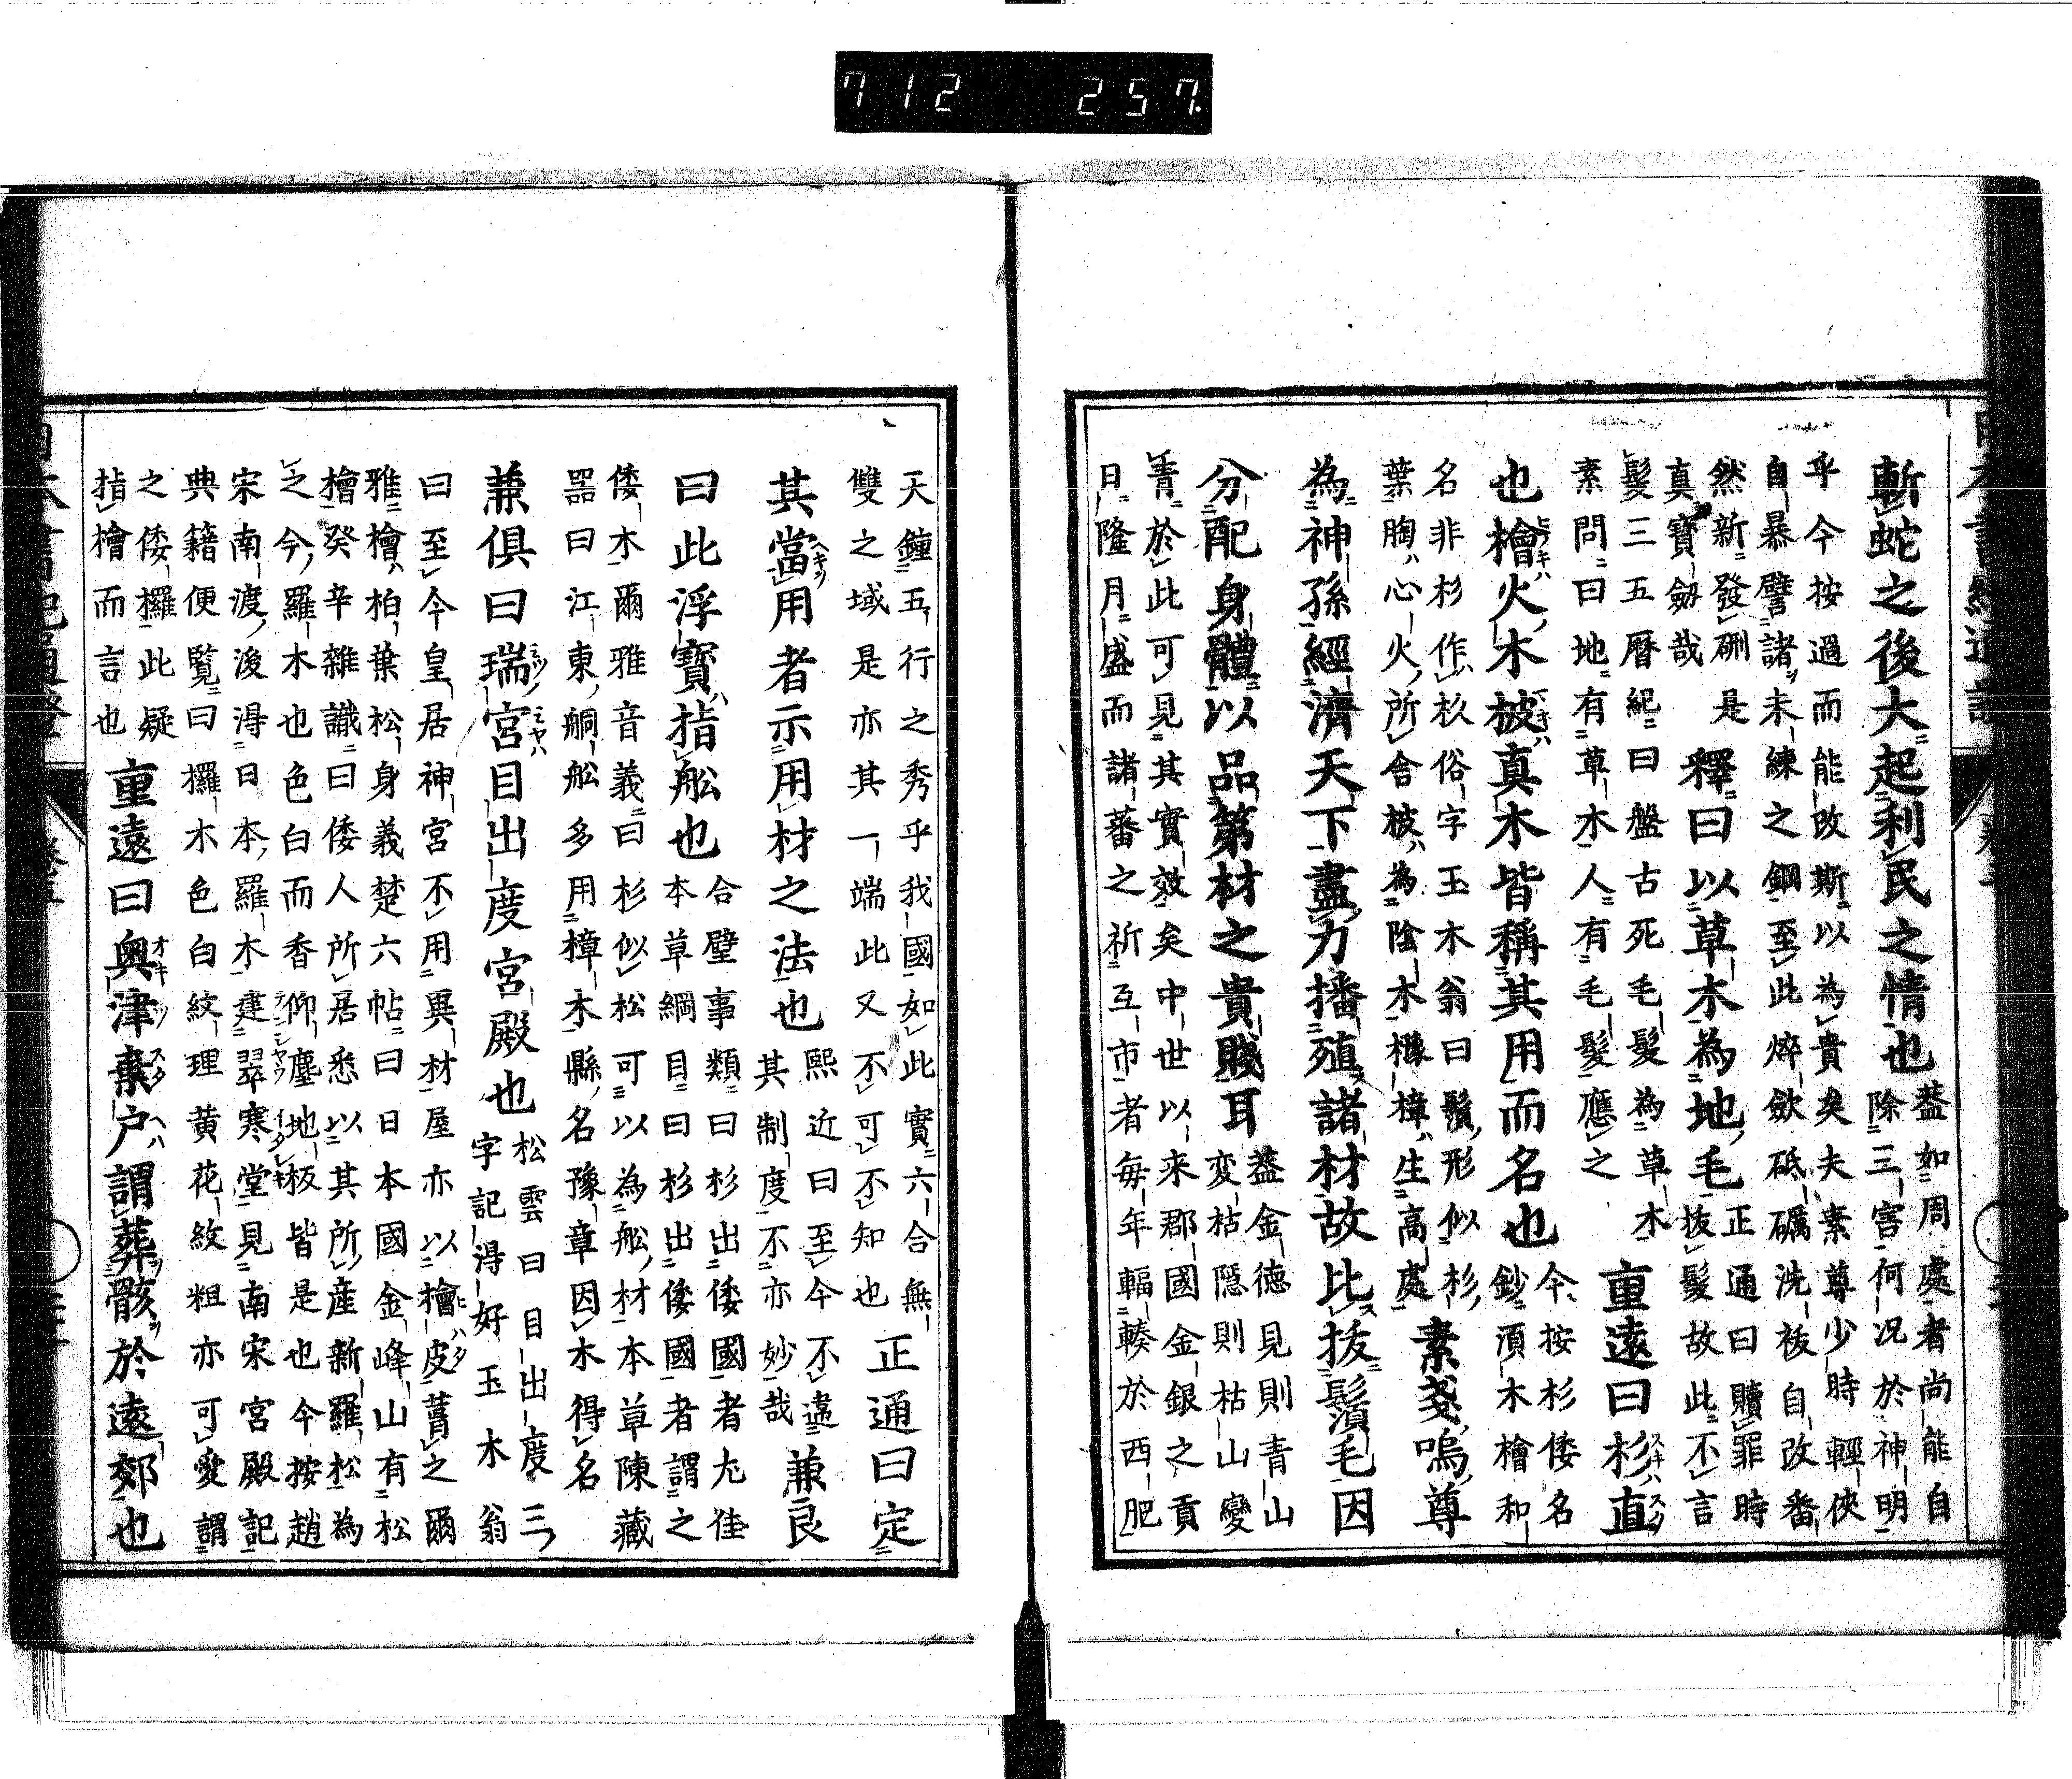 712 257
斬蛇之後大起利民之情也
蓋如周處者尚能自
除三害何況於神明
乎今按過而能改斯以為貴矣夫素尊少時輕俠
自暴譬諸未練之鋼至此焠歛砥礪洗祓自改番
然新發硎是
真寶劔哉
釋曰以草木為地毛
正通曰贖罪時
拔髮故此不言
髮三五曆紀曰盤古死毛髮為草木
素問曰地有草木人有毛髮應之
重遠曰杉直
也檜火木柀真木皆稱其用而名也
今按杉倭名
鈔湏木檜和
名非杉作杦俗字玉木翁曰鬚形似杉
葉胸心火所舎柀為陰木櫲樟生高處
素戔嗚尊
為神孫經濟天下盡力播殖諸材故比拔鬚毛因
分配身體以品第材之貴賤耳
蓋金徳見則青山
変枯隱則枯山變
青於此可見其實效矣中世以来郡國金銀之貢
日隆月盛而諸蕃之祈互市者毎年輻輳於西肥
天鍾五行之秀乎我國如此實六合無
雙之域是亦其一端此又不可不知也
正通曰定
其當用者示用材之法也
熙近曰至今不違
其制度不亦妙哉
兼良
曰此浮寶指舩也
合璧事類曰杉出倭國者尤佳
本草綱目曰杉出倭國者謂之
倭木爾雅音義曰杉似松可以為舩材本草陳藏
噐曰江東艑舩多用樟木縣名豫章因木得名
兼俱曰瑞宮目出度宮殿也
松雲曰目出度三
字記得好玉木翁
曰至今皇居神宮不用異材屋亦以檜皮葺之爾
雅檜柏葉松身義楚六帖曰日本國金峰山有松
檜癸辛雜識曰倭人所居悉以其所産新羅松為
之今羅木也色白而香仰塵地板皆是也今按趙
宋南渡後淂日本羅木建翠寒堂見南宋宮殿記
典籍便覧曰欏木色白紋理黄花紋粗亦可愛謂
之倭欏此疑
指檜而言也
重遠曰奥津棄户謂葬骸於遠郊也